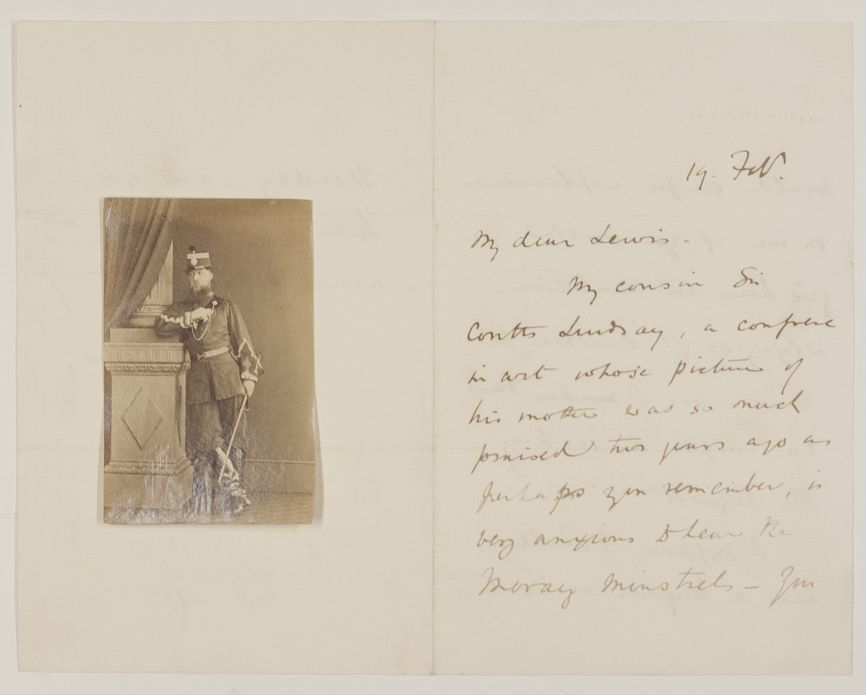 19. Feb.
My dear Lewis -
My cousin Sir
Coutts Lindsay, a confrere
in art whose picture of
his mother was so much
praised two years ago as
perhaps you remember, is
very anxious to hear the
Moray Minstrels - You